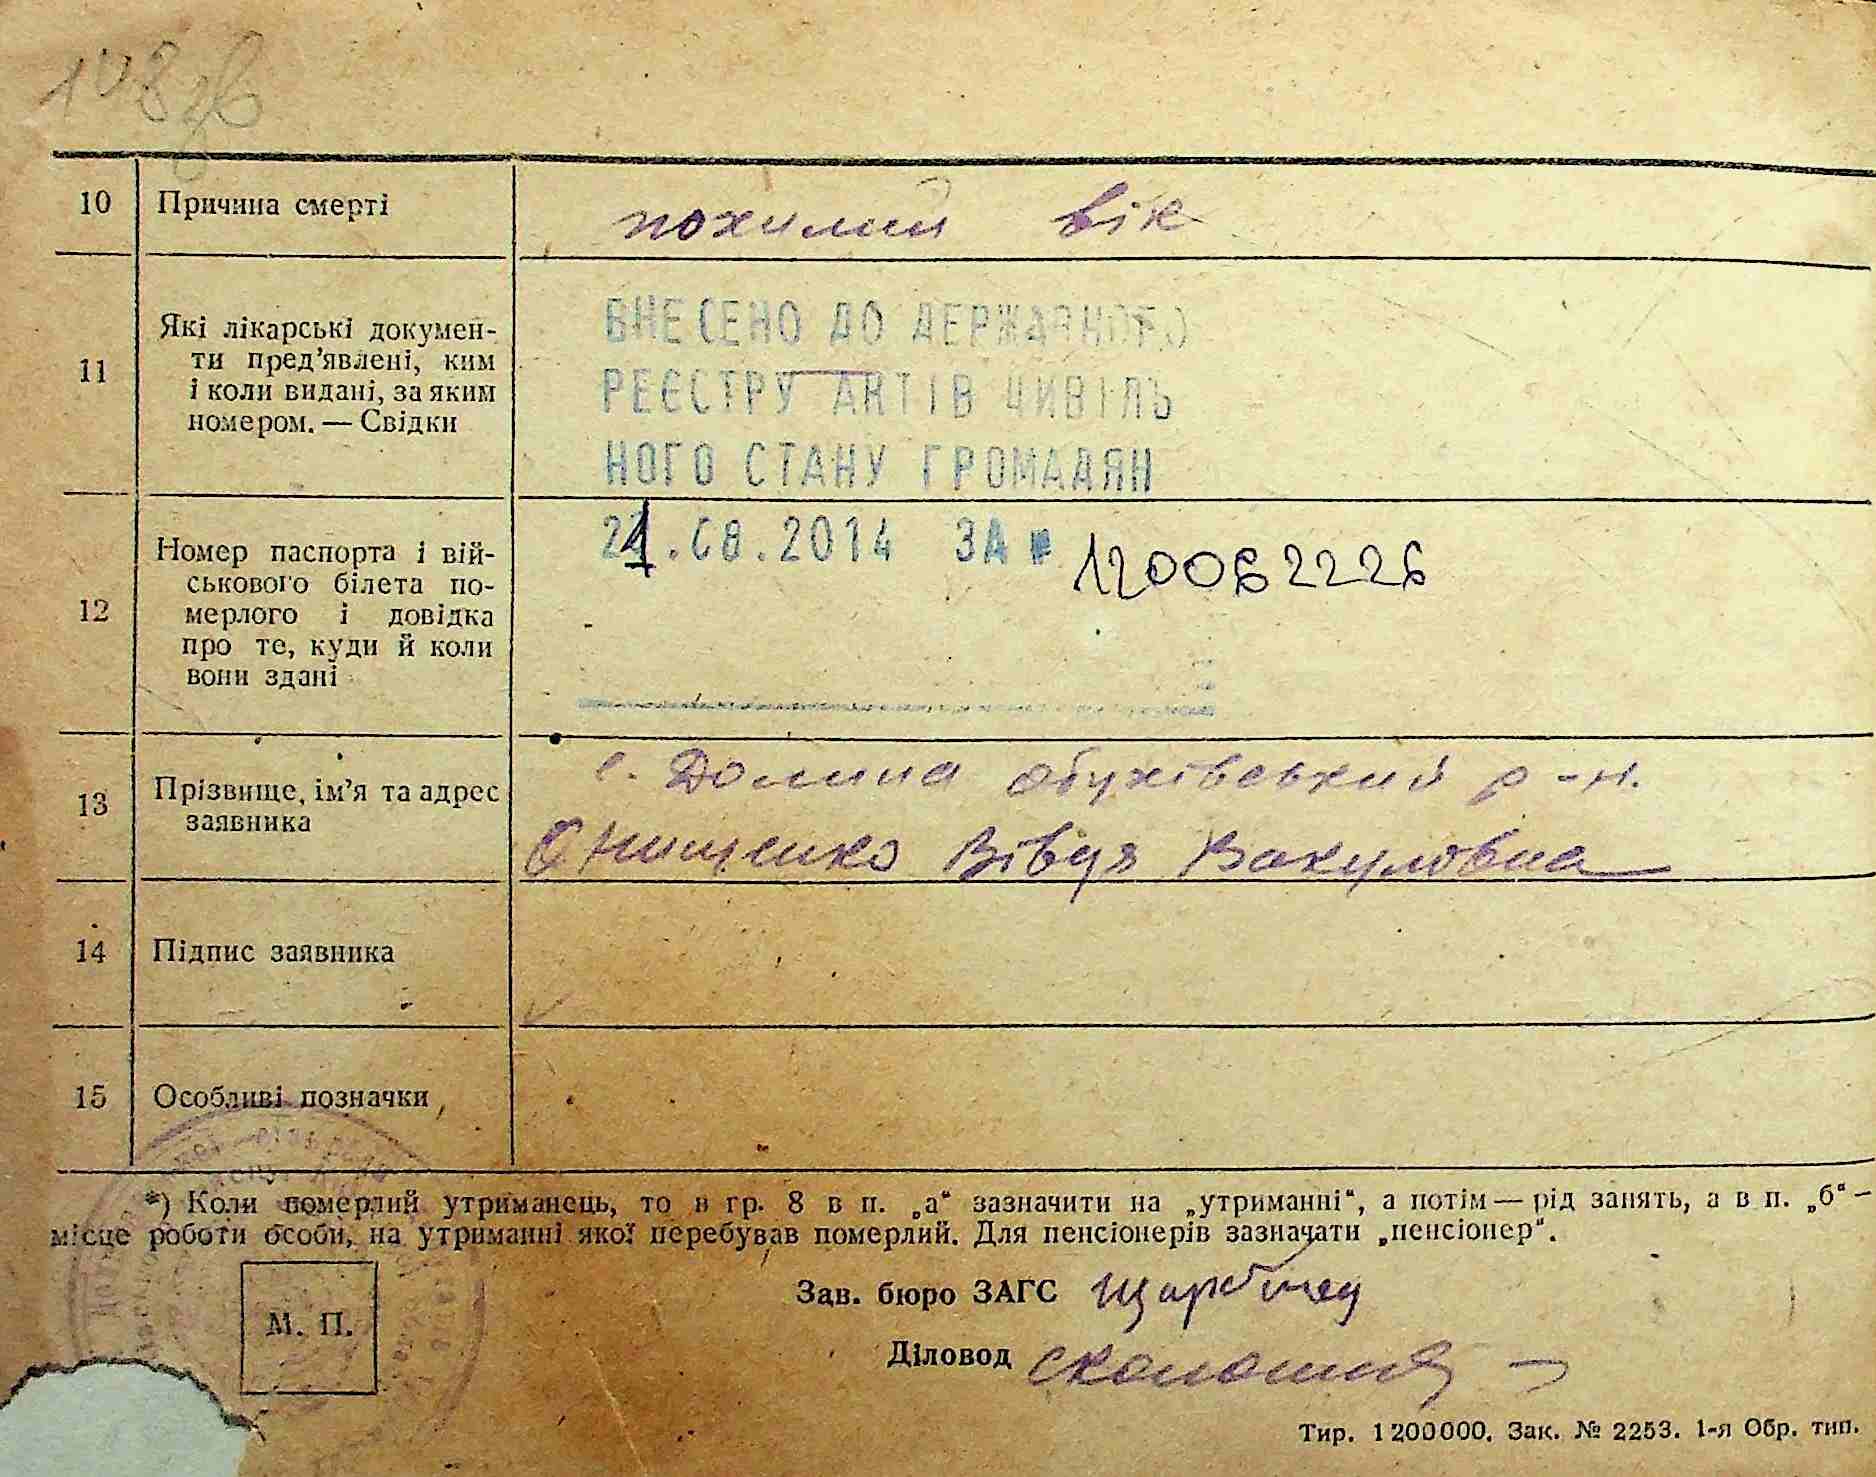 10 Причина смерті похилий вік
11 Які лікарські докумен-
ти пред’явлені, ким
і коли видані, за яким
номером. — Свідки
ВНЕСЕНО ДО ДЕРЖАВНОГО
РЕЄСТРУ АКТІВ ЦИВІЛЬ
НОГО СТАНУ ГРОМАДЯН
21.08.2014 ЗА № 120062226
12 Номер паспорта і вій-
ськового білета по-
мерлого і довідка
про те, куди й коли
вони здані
13 Прізвище, ім’я та адрес
заявника
с. Долина обухівський р-н.
Онищенко Вівдя Вакуловна
14 Підпис заявника
15 Особливі позначки
*) Коли померлий утриманець, то в гр. 8 в п. „а“ зазначити на „утриманні“, а потім — рід занять, а в п. „б“ –
місце роботи особи, на утриманні якої перебував померлий. Для пенсіонерів зазначати „пенсіонер“.
М. П.
Зав. бюро ЗАГС
Діловод
Тир. 1200000. Зак. № 2253. 1-я Обр. тип.